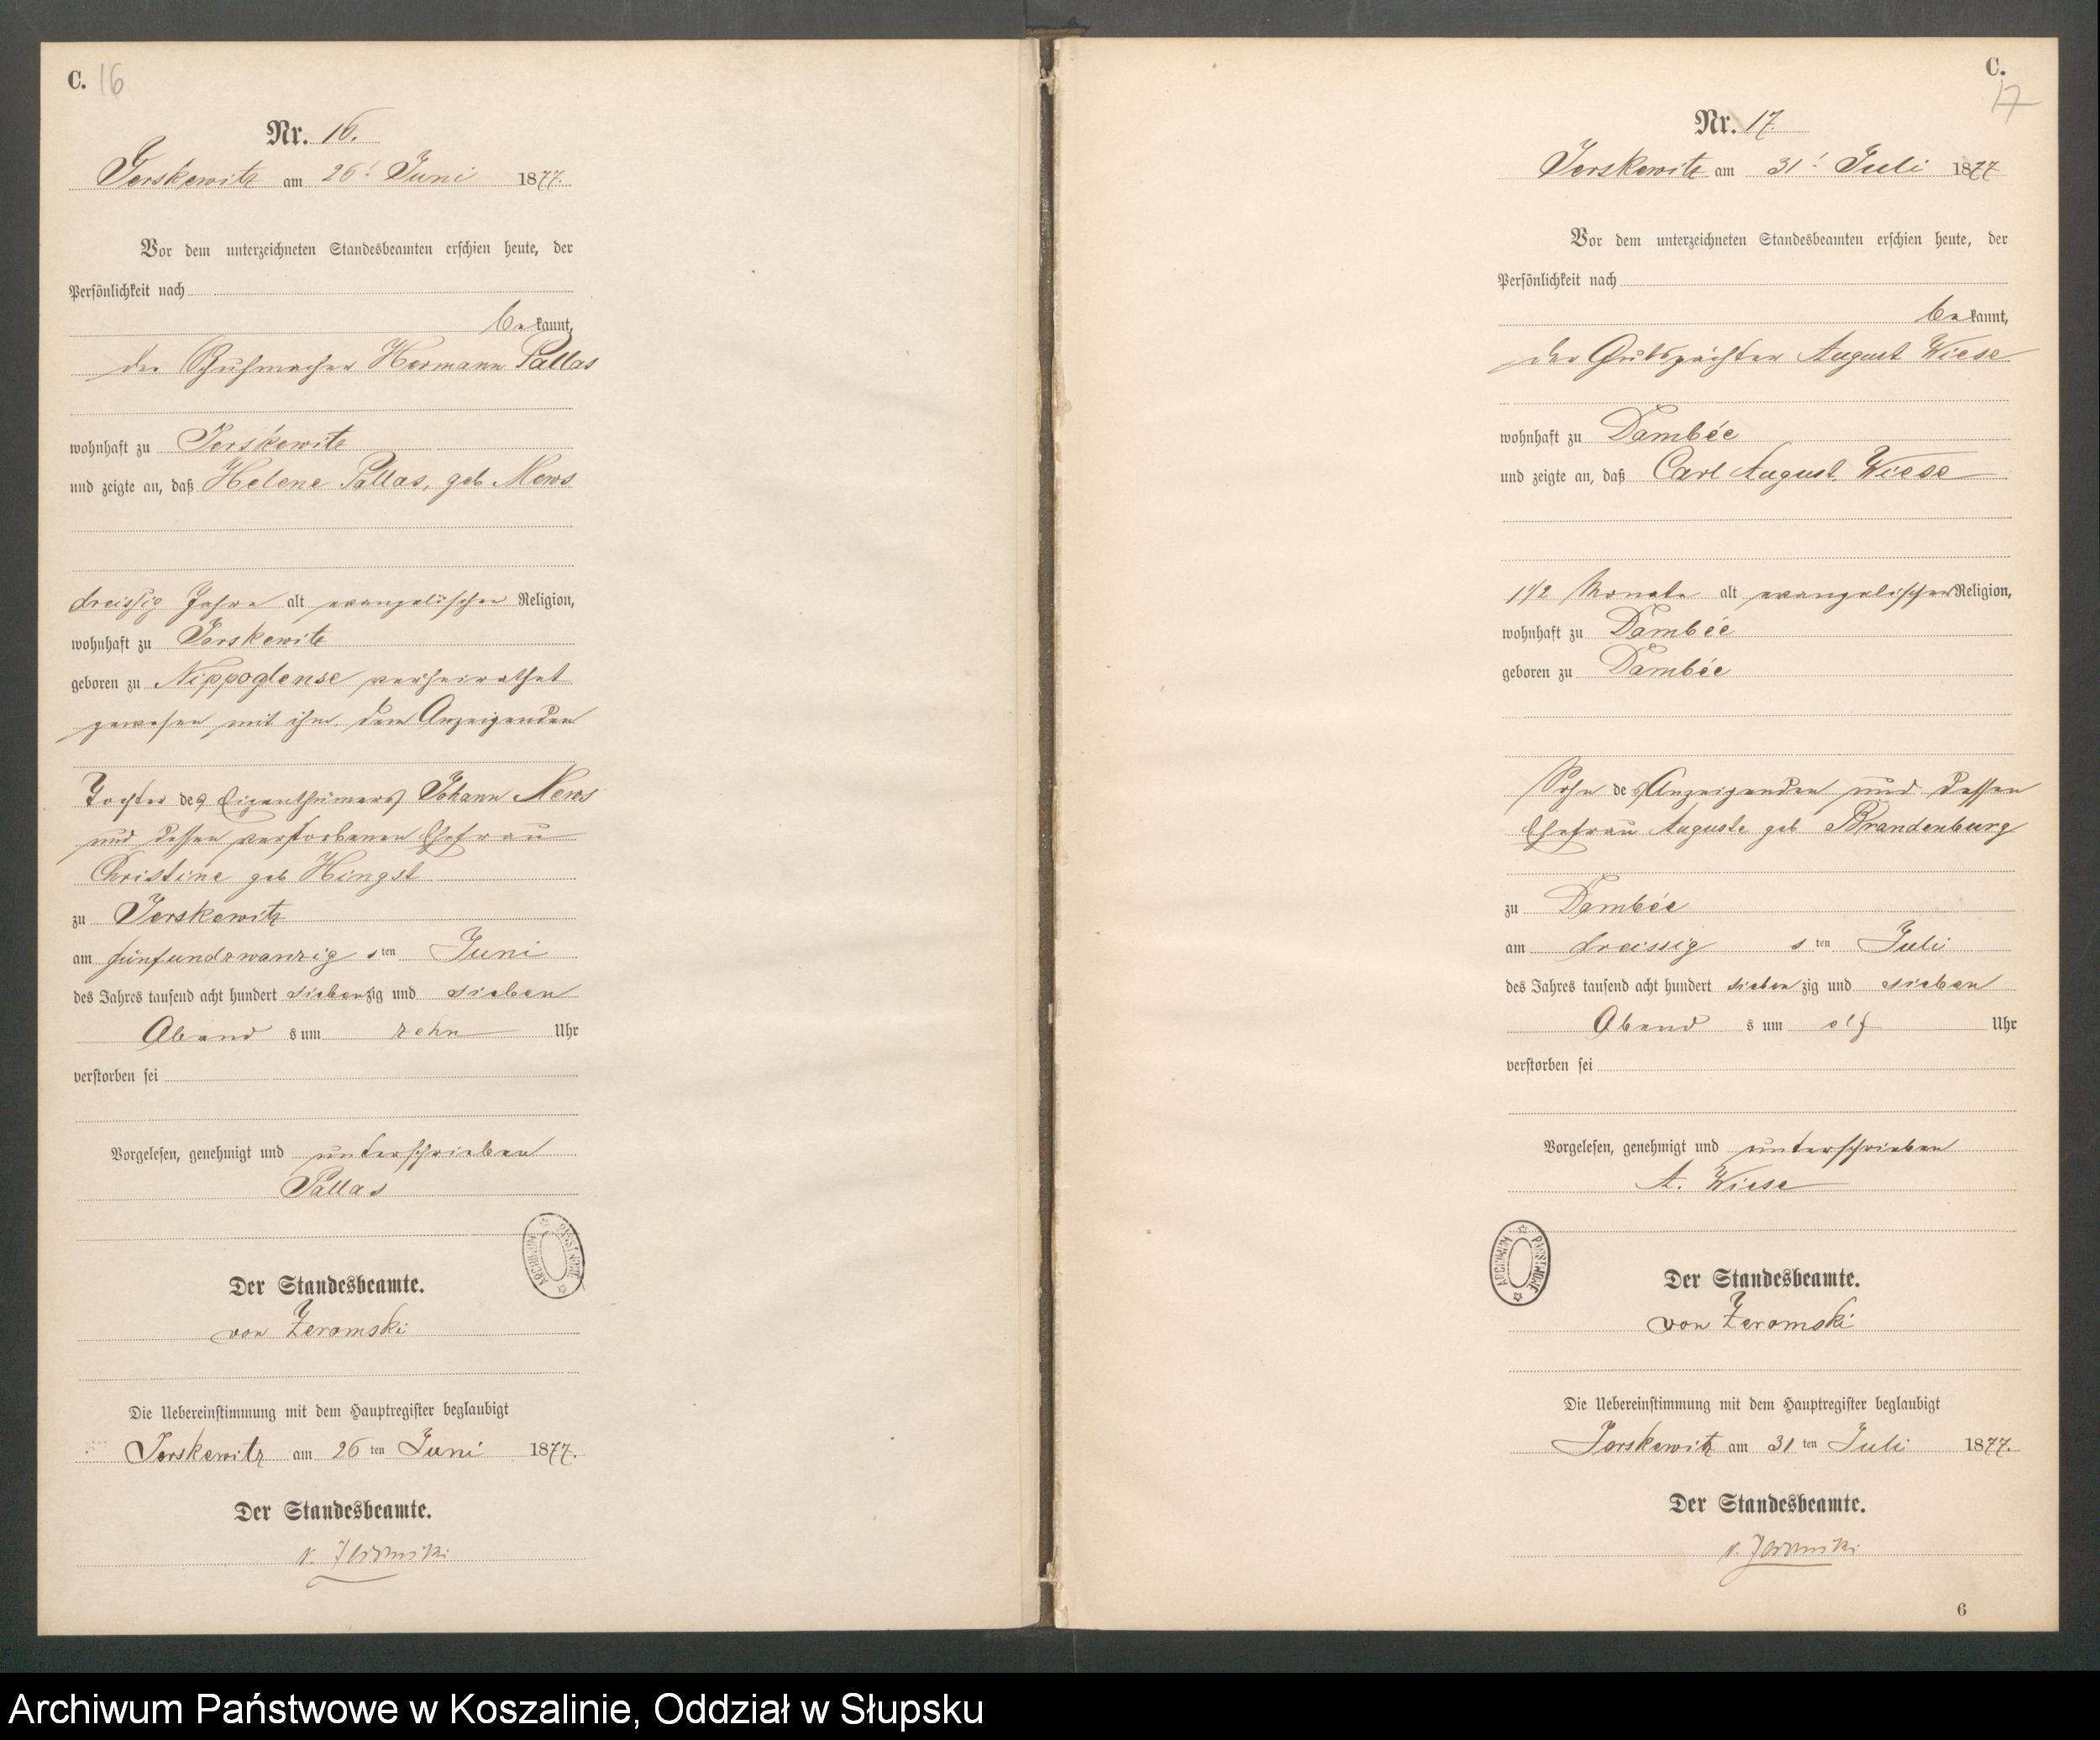 C. 16
Nr. 16.
Jerskewitz am 26t Juni 1877.
Vor dem unterzeichneten Standesbeamten erschien heute, der
Persönlichkeit nach
bekannt,
der Schuhmacher Hermann Pallas
wohnhaft zu Jerskewitz
und zeigte an, daß Helene Pallas, geb. Mews
dreissig Jahre alt evangelischer Religion,
wohnhaft zu Jerskewitz
geboren zu Nippoglense verheirathet
gewesen mit ihm, dem Anzeigenden
Tochter des Eigenthümers Johann Mews
und dessen verstorbenen Ehefrau
Christine geb Hingst
zu Jerskewitz
am fünfundzwanzig sten Juni
des Jahres tausend acht hundert siebenzig und sieben
Abend s um zehn Uhr
verstorben sei
Vorgelesen, genehmigt und unterschrieben
Pallas
ARCHIWUM PAŃSTWOWE
Der Standesbeamte.
von Zeromski
Die Uebereinstimmung mit dem Hauptregister beglaubigt
Jerskewitz am 26 ten Juni 1877.
Der Standesbeamte.
v. Zeromski
C.
17
Nr. 17.
Jerskewitz am 31t Juli 1877
Vor dem unterzeichneten Standesbeamten erschien heute, der
Persönlichkeit nach
bekannt,
der Gutspächter August Wiese
wohnhaft zu Dambée
und zeigte an, daß Carl August Wiese
1 1/2 Monate alt evangelischer Religion,
wohnhaft zu Dambée
geboren zu Dambée
Sohn des Anzeigenden und dessen
Ehefrau Auguste geb Brandenburg
zu Dambée
am dreissig sten Juli
des Jahres tausend acht hundert siebenzig und sieben
Abend s um elf Uhr
verstorben sei
Vorgelesen, genehmigt und unterschrieben
A. Wiese
ARCHIWUM PAŃSTWOWE
Der Standesbeamte.
von Zeromski
Die Uebereinstimmung mit dem Hauptregister beglaubigt
Jerskewitz am 31 ten Juli 1877.
Der Standesbeamte.
v. Zeromski
6
Archiwum Państwowe w Koszalinie, Oddział w Słupsku